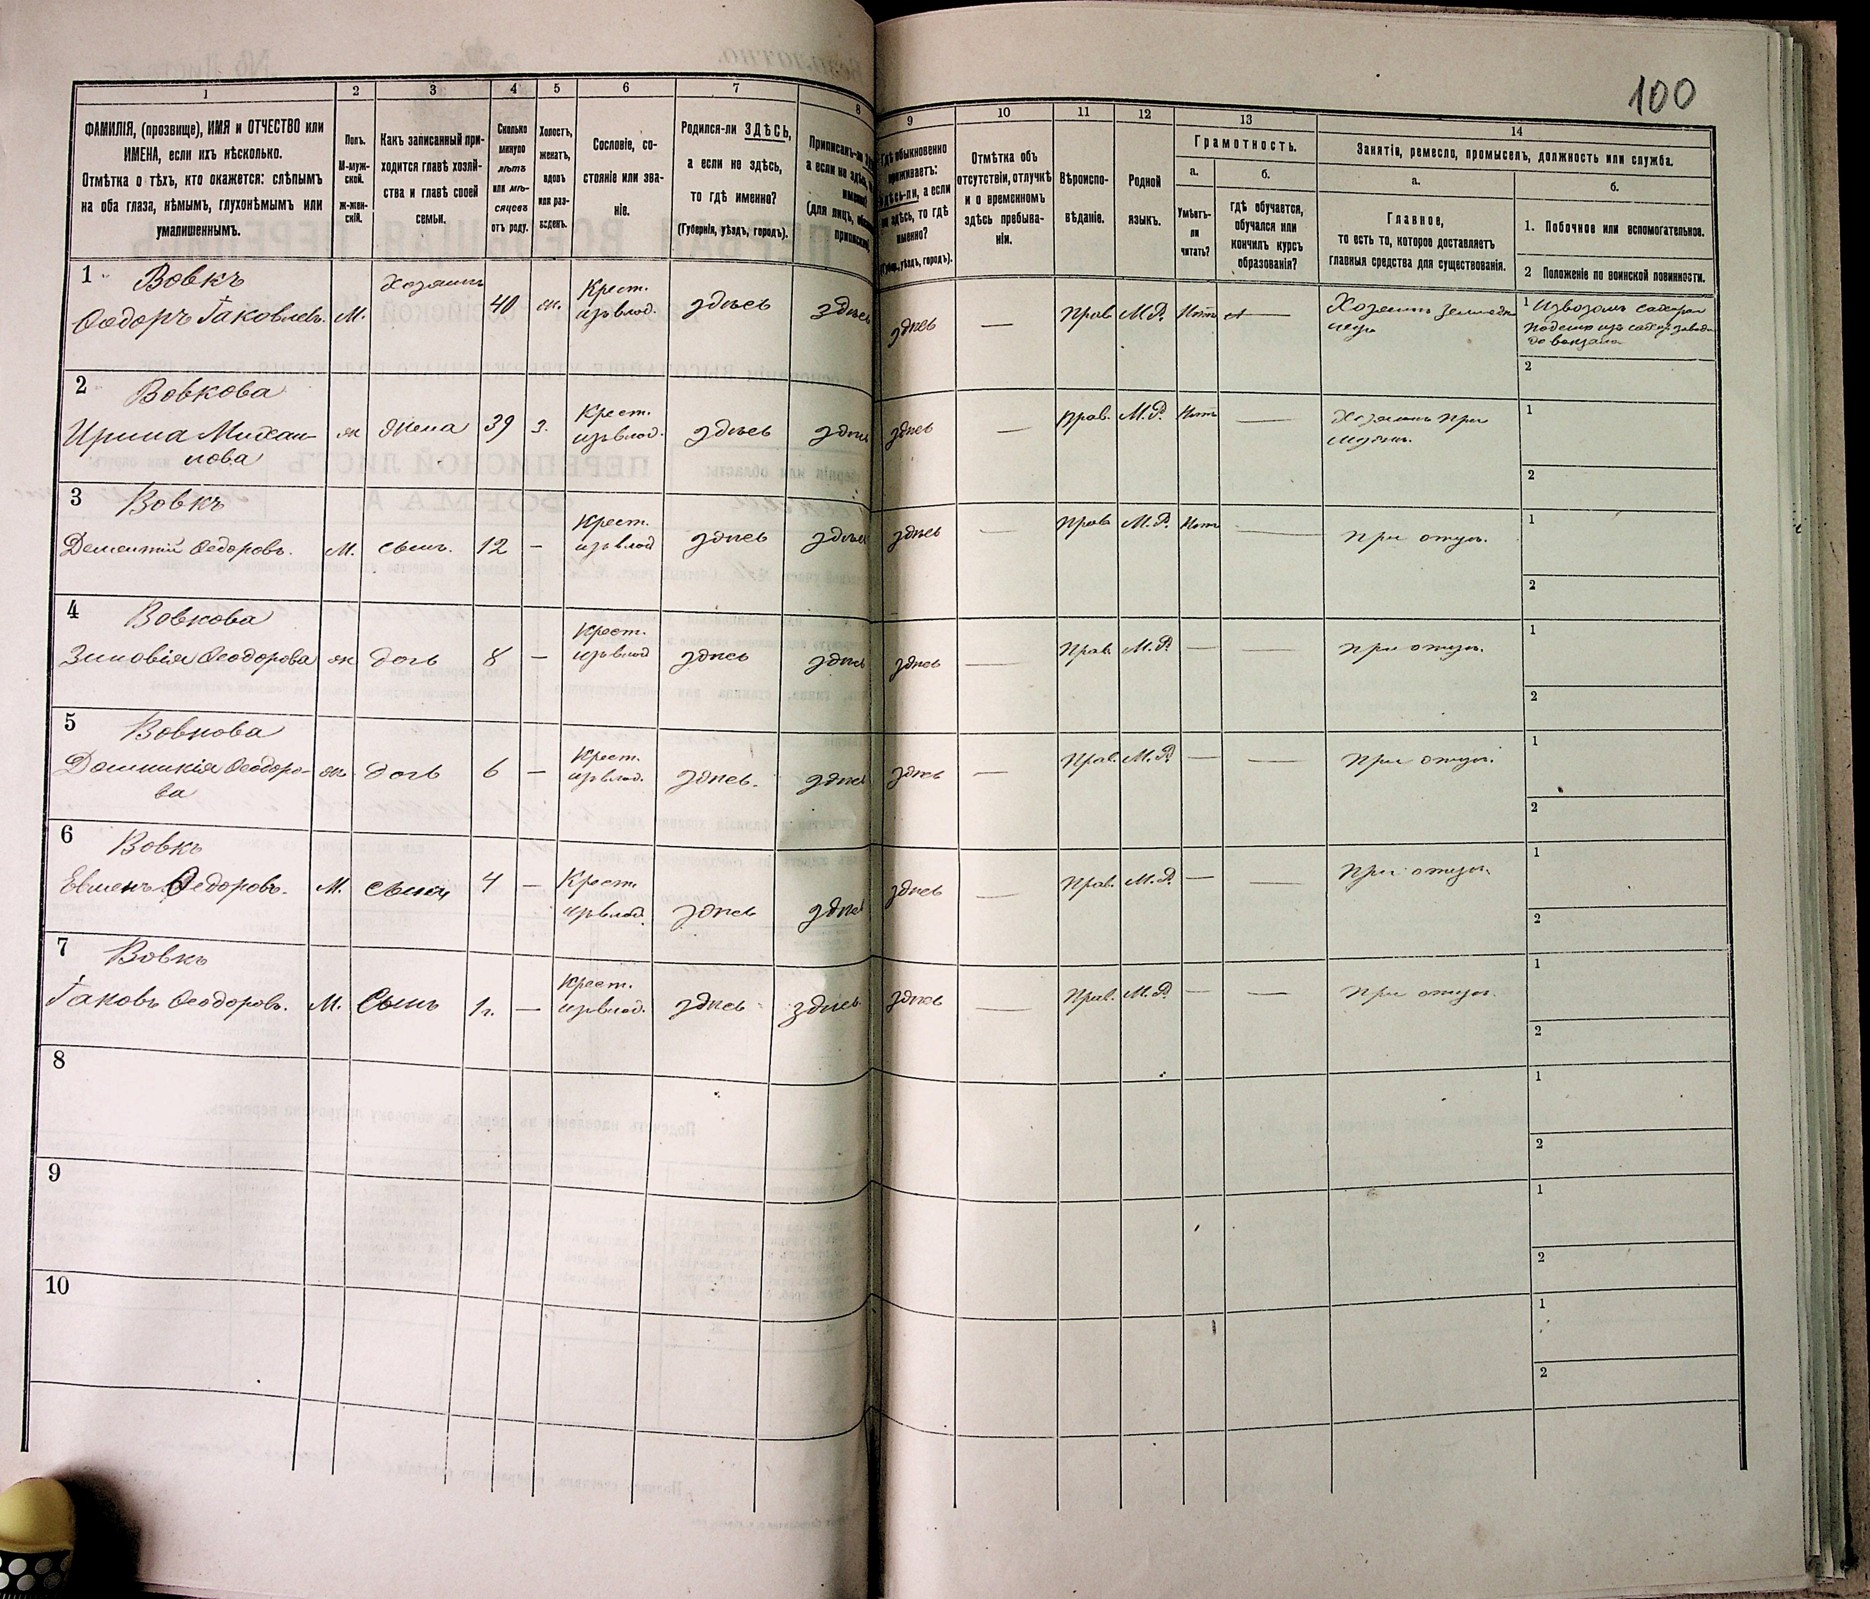 100
1
2
3
4
5
6
7
8
9
10
11
12
13
14
ФАМИЛІЯ, (прозвище), ИМЯ и ОТЧЕСТВО или
ИМЕНА, если ихъ нѣсколько.
Отмѣтка о тѣхъ, кто окажется: слѣпымъ
на оба глаза, нѣмымъ, глухонѣмымъ или
умалишеннымъ.
Полъ.
М-муж-
ской.
ж-жен-
скій.
Какъ записанный при-
ходится главѣ хозяй-
ства и главѣ своей
семьи.
Сколько
минуло
лѣтъ
или мѣ-
сяцевъ
отъ роду.
Холостъ,
женатъ,
вдовъ
или раз-
веденъ.
Сословіе, со-
стояніе или зва-
ніе.
Родился-ли ЗДѢСЬ,
а если не здѣсь,
то гдѣ именно?
(Губернія, уѣздъ, городъ).
Приписанъ-ли
а если не здѣсь,
(для лицъ,
Гдѣ обыкновенно
проживаетъ:
здѣсь-ли, а если
не здѣсь, то гдѣ
именно?
(Губерн., уѣздъ, городъ).
Отмѣтка объ
отсутствіи, отлучкѣ
и о временномъ
здѣсь пребыва-
ніи.
Вѣроиспо-
вѣданіе.
Родной
языкъ.
Грамотность.
а.
б.
Умѣетъ-
ли
читать?
гдѣ обучается,
обучался или
кончилъ курсъ
образованія?
Занятіе, ремесло, промыселъ, должность или служба.
а.
б.
Главное,
то есть то, которое доставляетъ
главныя средства для существованія.
1. Побочное или вспомогательное.
2 Положеніе по воинской повинности.
1 Вовкъ Хозяинъ Крест.
Ѳеодоръ Іаковлев. М. 40 ж. изъ влад. здѣсь здѣсь здѣсь — Прав М.Р. Нѣтъ — Хозяинъ земледѣ
1 Извозомъ сахара
до вокзала
2
2 Вовкова Крест.
Ирина Михаи- ж жена 39 з. изъ влад. здѣсь здѣсь здѣсь — Прав. М.Р. Нѣтъ — Хозяинъ При
лова мужѣ.
1
2
3 Вовкъ Крест.
Дементій Ѳедоровъ. М. сынъ. 12 — изъ влад здѣсь здѣсь здѣсь — Прав М.Р. Нѣтъ — При отцѣ.
1
2
4 Вовкова Крест.
Зиновія Ѳеодорова ж дочь 8 — изъ влад здѣсь здѣсь здѣсь — Прав. М.Р. — — При отцѣ.
1
2
5 Вовкова Крест.
Домникія Ѳеодоро- ж дочь 6 — изъ влад. здѣсь. здѣсь здѣсь — Прав. М.Р. — — При отцѣ.
ва
1
2
6 Вовкъ
Евменъ Ѳедоровъ. М. сынъ 4 — Крест. здѣсь — Прав. М.Р. — — При отцѣ.
изъ влад. здѣсь здѣсь
1
2
7 Вовкъ Крест.
Іаковъ Ѳеодоровъ. М. Сынъ 1 г. — изъ влад. здѣсь здѣсь здѣсь — Прав. М.Р. — — При отцѣ.
1
2
8
1
2
9
1
2
10
1
2